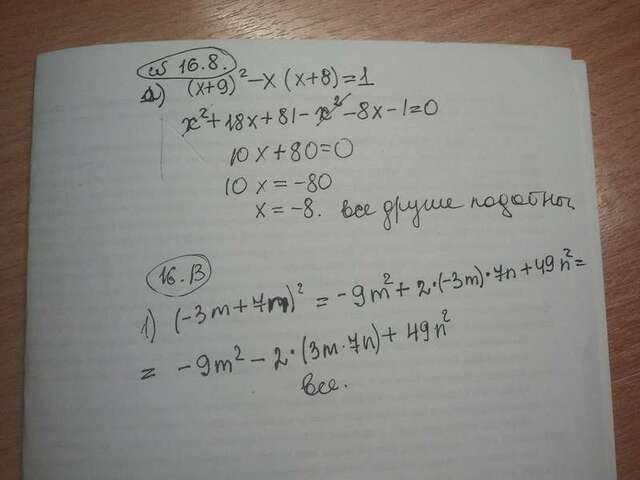 № 16.8.
1) (x+9)² - x (x+8) = 1
x² + 18x + 81 - x² - 8x - 1 = 0
10x + 80 = 0
10x = -80
x = -8. все другие подобны
16.13
1) (-3m + 7n)² = -9m² + 2·(-3m)·7n + 49n² =
= -9m² - 2·(3m·7n) + 49n²
все.